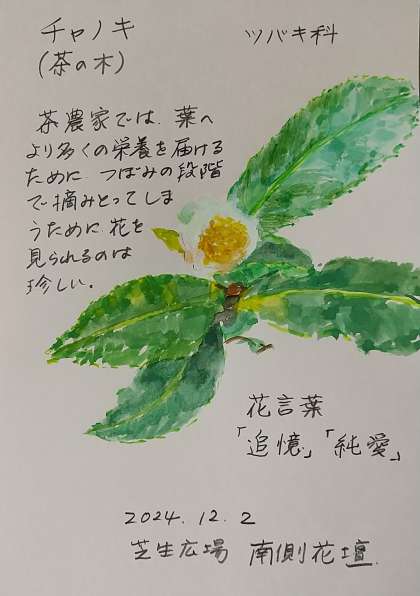 チャノキ
ツバキ科
(茶の木)
茶農家では、葉へ
より多くの栄養を届ける
ために つぼみの段階
で摘みとってしま
うために 花を
見られるのは
珍しい。
花言葉
「追憶」「純愛」
2024.12.2
芝生広場 南側花壇